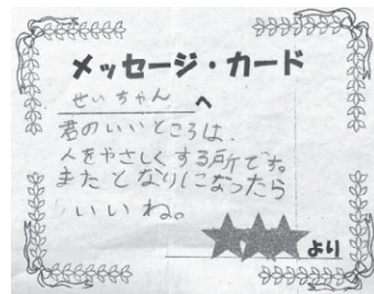 メッセージ・カード
せいちゃんへ
君のいいところは、
人をやさしくする所です。
またとなりになったら
いいね。
より